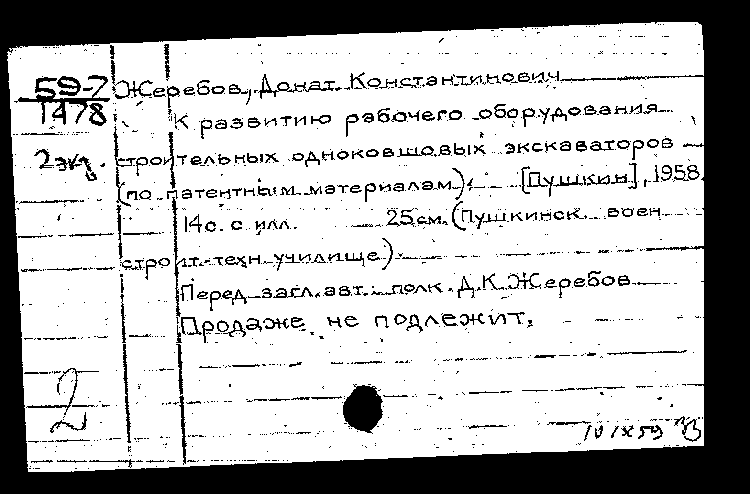 59-7 Жеребов, Донат Константинович
1478 К развитию рабочего оборудования
2 экз. строительных одноковшовых экскаваторов —
(по патентным материалам). [Пушкин], 1958.
14 с. с илл. 25 см. (Пушкинск. воен.
строит.-техн. училище).
Перед загл. авт.: полк. Д.К. Жеребов
Продаже не подлежит.
2
IX 59